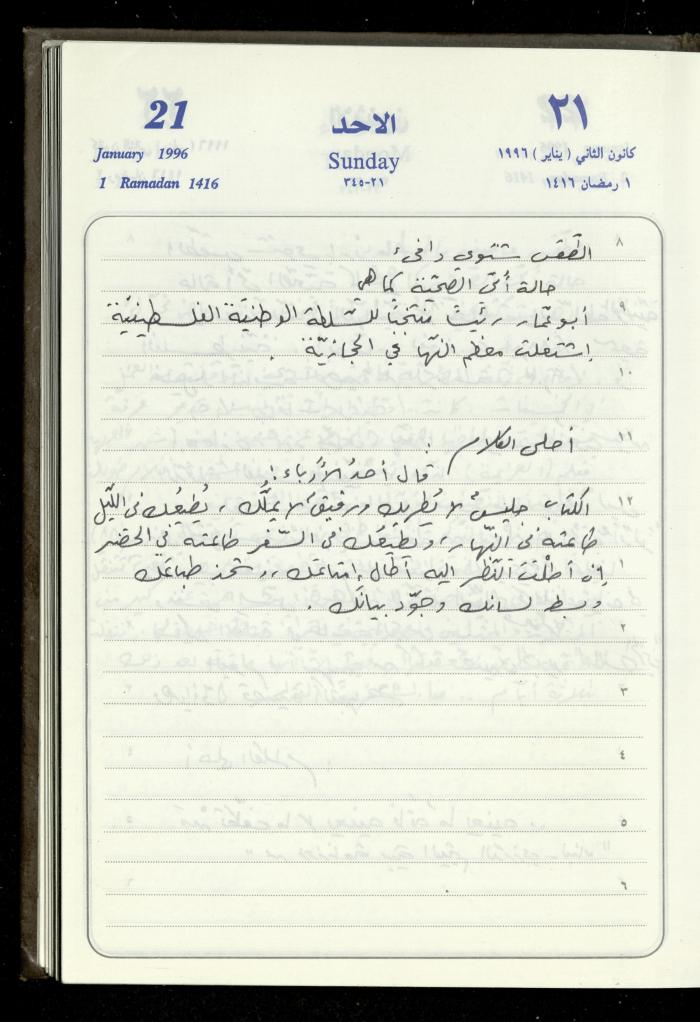 21
January 1996
1 Ramadan 1416
الاحد
Sunday
٢١-٣٤٥
٢١
كانون الثاني ( يناير ) ١٩٩٦
١ رمضان ١٤١٦
٨
الطّقس شتوي دافىء
حالة أمّي الصحيّة كما هي
٩
أبو عمّار رئيسًا منتخبًا للسّلطة الوطنيّة الفلسطينيّة
إشتغلت معظم النّهار في الحجازيّة .
١٠
١١
أحلى الكلام :
قال أحد الأدباء :
١٢
الكتاب جليسٌ لا يُطريك ورفيقٌ لا يملّك ، يُطيعُك في اللّيل
طاعته في النّهار ، ويُطيعُك في السّفر طاعته في الحضر
١
إن أطلْتَ النّظر إليه أطال إمتاعَك ،، شحذ طباعَك
وبسط لسانك وجوّد بيانَك .
٢
٣
٤
٥
٦